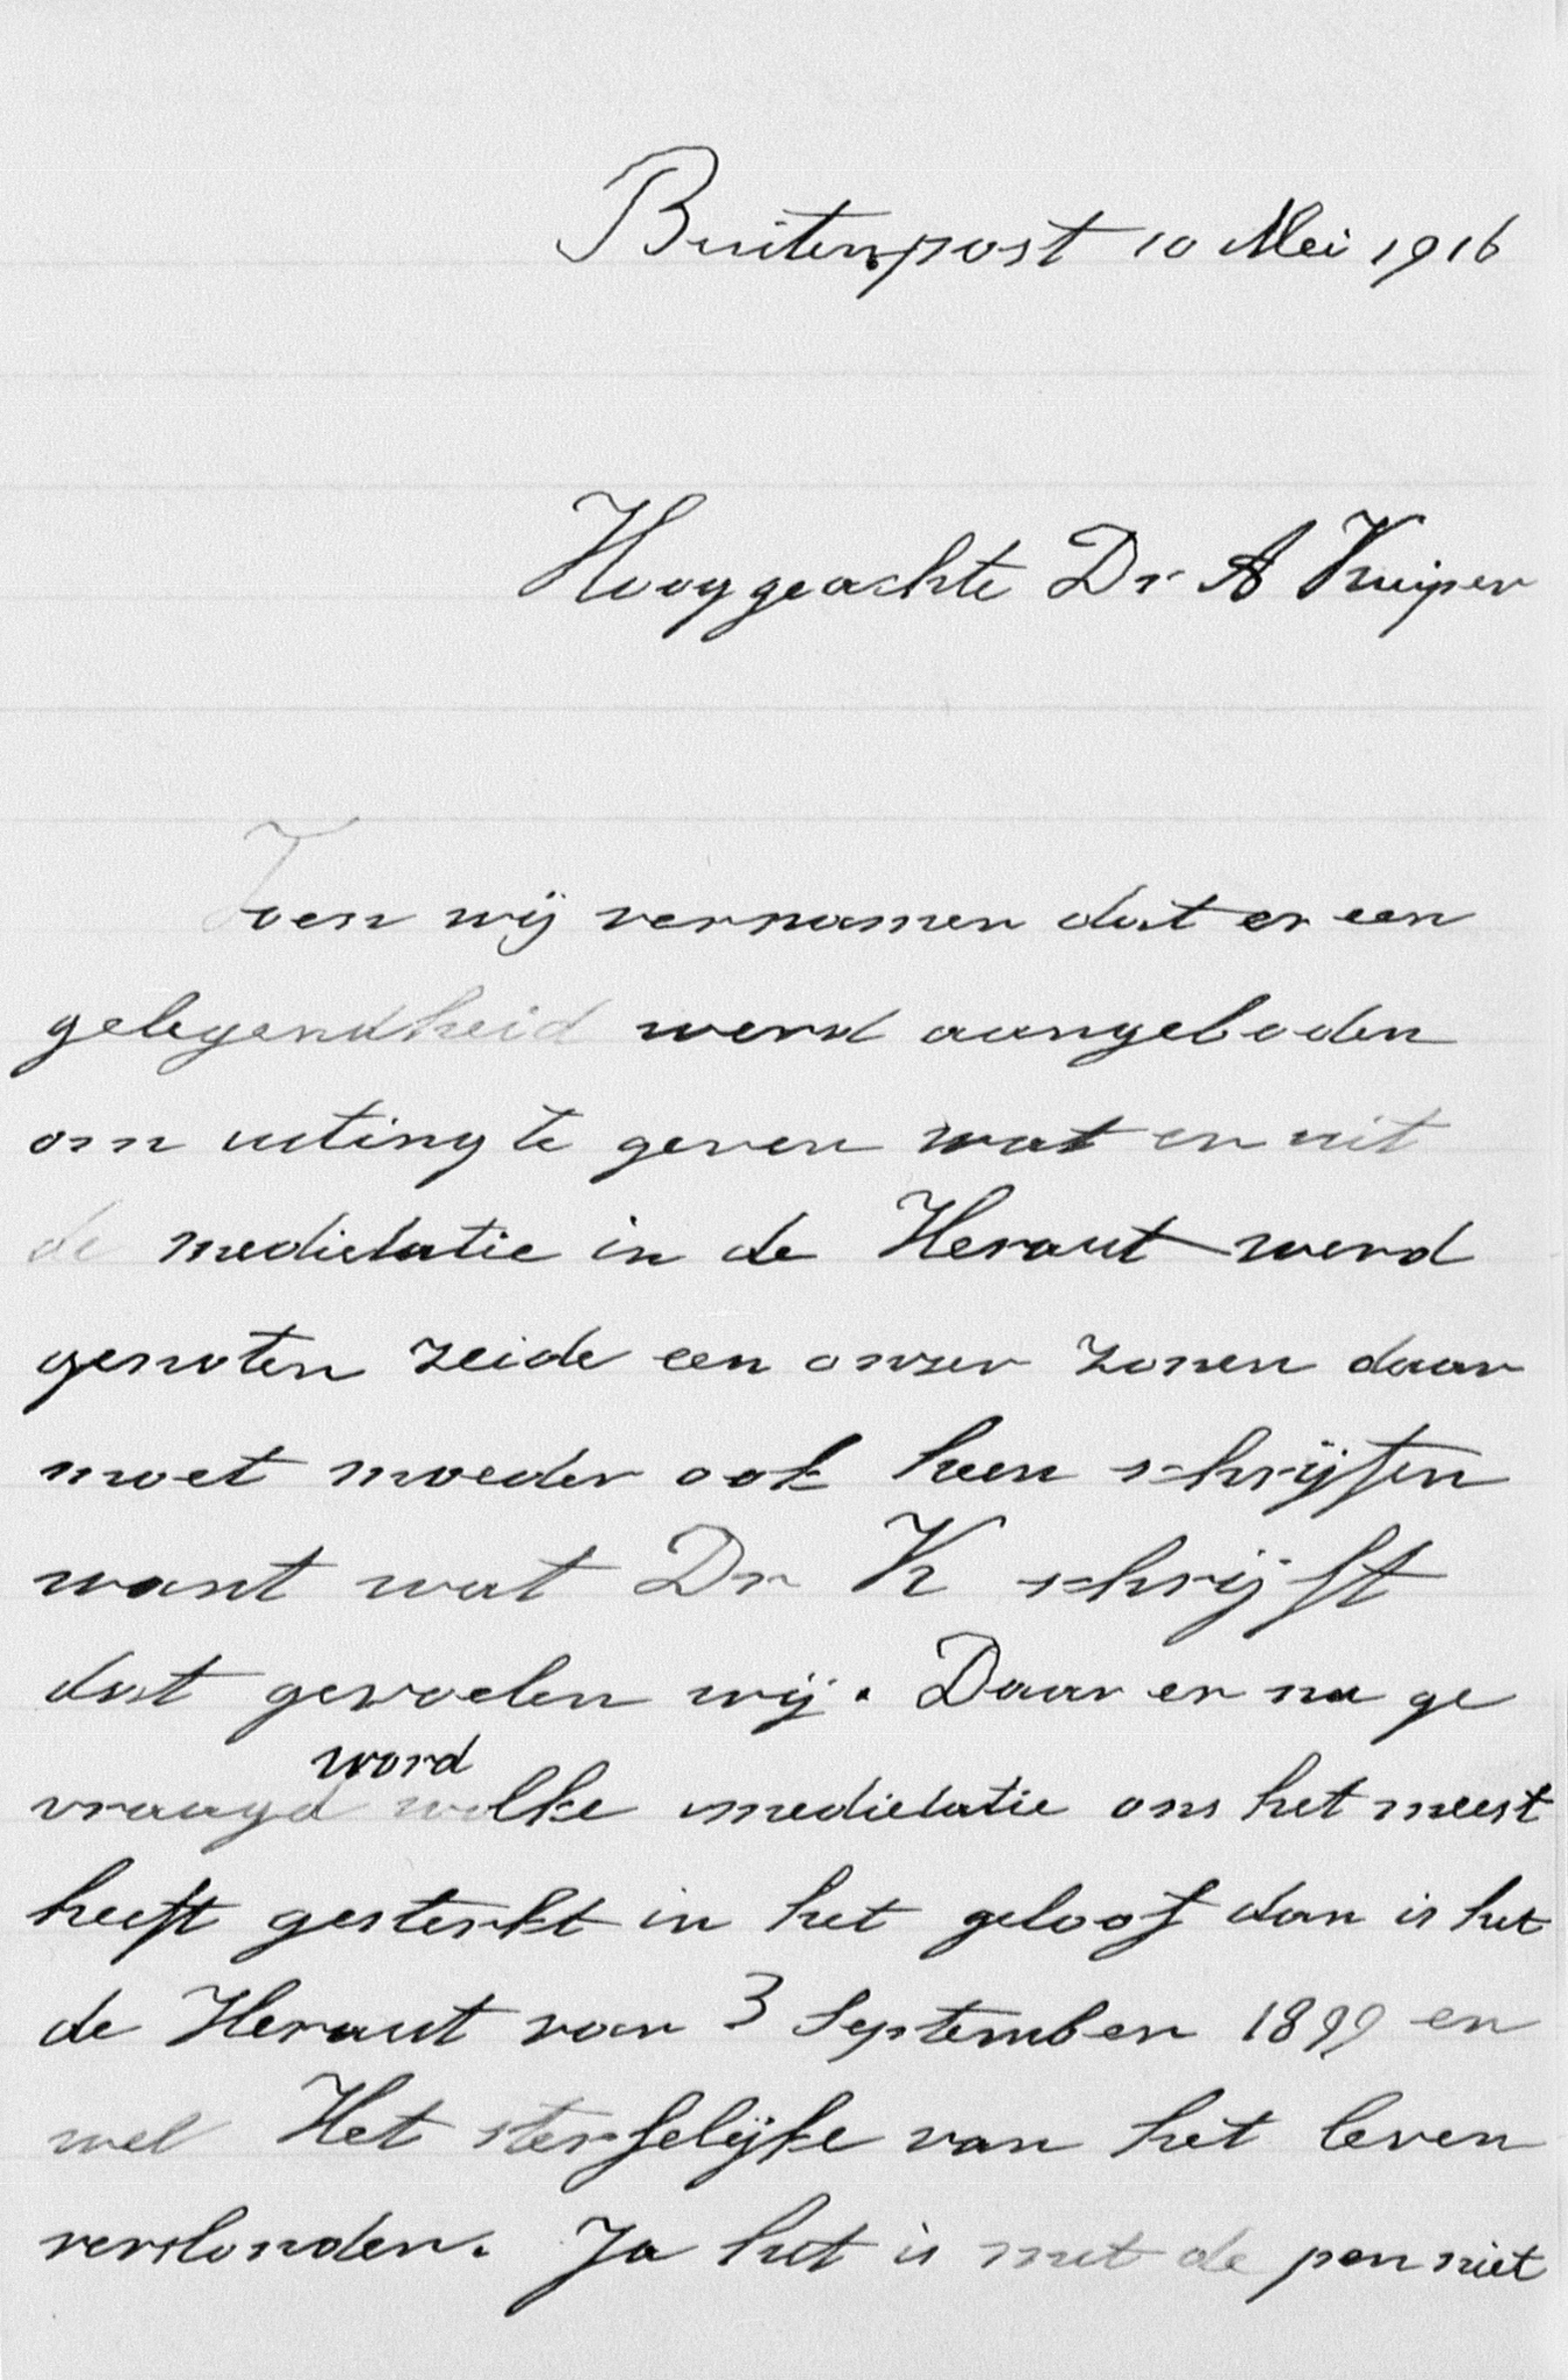 Buitenpost 10 Mei 1916
Hooggeachte Dr A Kuiper
Toen wij vernamen dat er een
gelegendheid werd aangeboden
om uiting te geven wat er uit
de medietatie in de Heraut werd
genoten zeide een onzer zonen daar
moet moeder ook heen schrijfen
want wat Dr K schrijft
dat gevoelen wij. Daar er nu ge
word
vraagd welke medietatie ons het meest
heeft gesterkt in het geloof dan is het
de Heraut van 3 September 1899 en
wel Het sterfelijke van het leven
verslonden. Ja het is met de pen niet